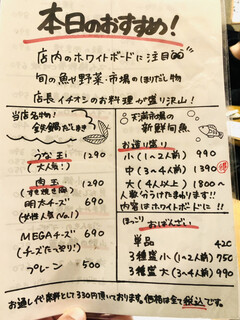 本日のおすすめ!
店内のホワイトボードに注目
旬の魚や野菜・市場のほりだし物
店長イチオシのお料理が盛り沢山!
当店名物!
鉄鍋だしまき
うな玉 1290
(大人気!)
肉玉 1290
(すき焼き風)
明太チーズ 690
(女性人気No.1)
MEGAチーズ 690
(チーズたっぷり!)
プレーン 500
天満市場の
新鮮旬魚
お造り盛り
小(1〜2人前) 990
中(3〜4人前) 1390
大(4人以上) 1800〜
人数分うけたまわります!!
内容はホワイトボードに!!
ほっこり おばんざい
単品 420
3種盛 小(1〜2人前) 750
3種盛 大(3〜4人前) 990
お通し代・席料として330円頂いております。価格は全て税込です。